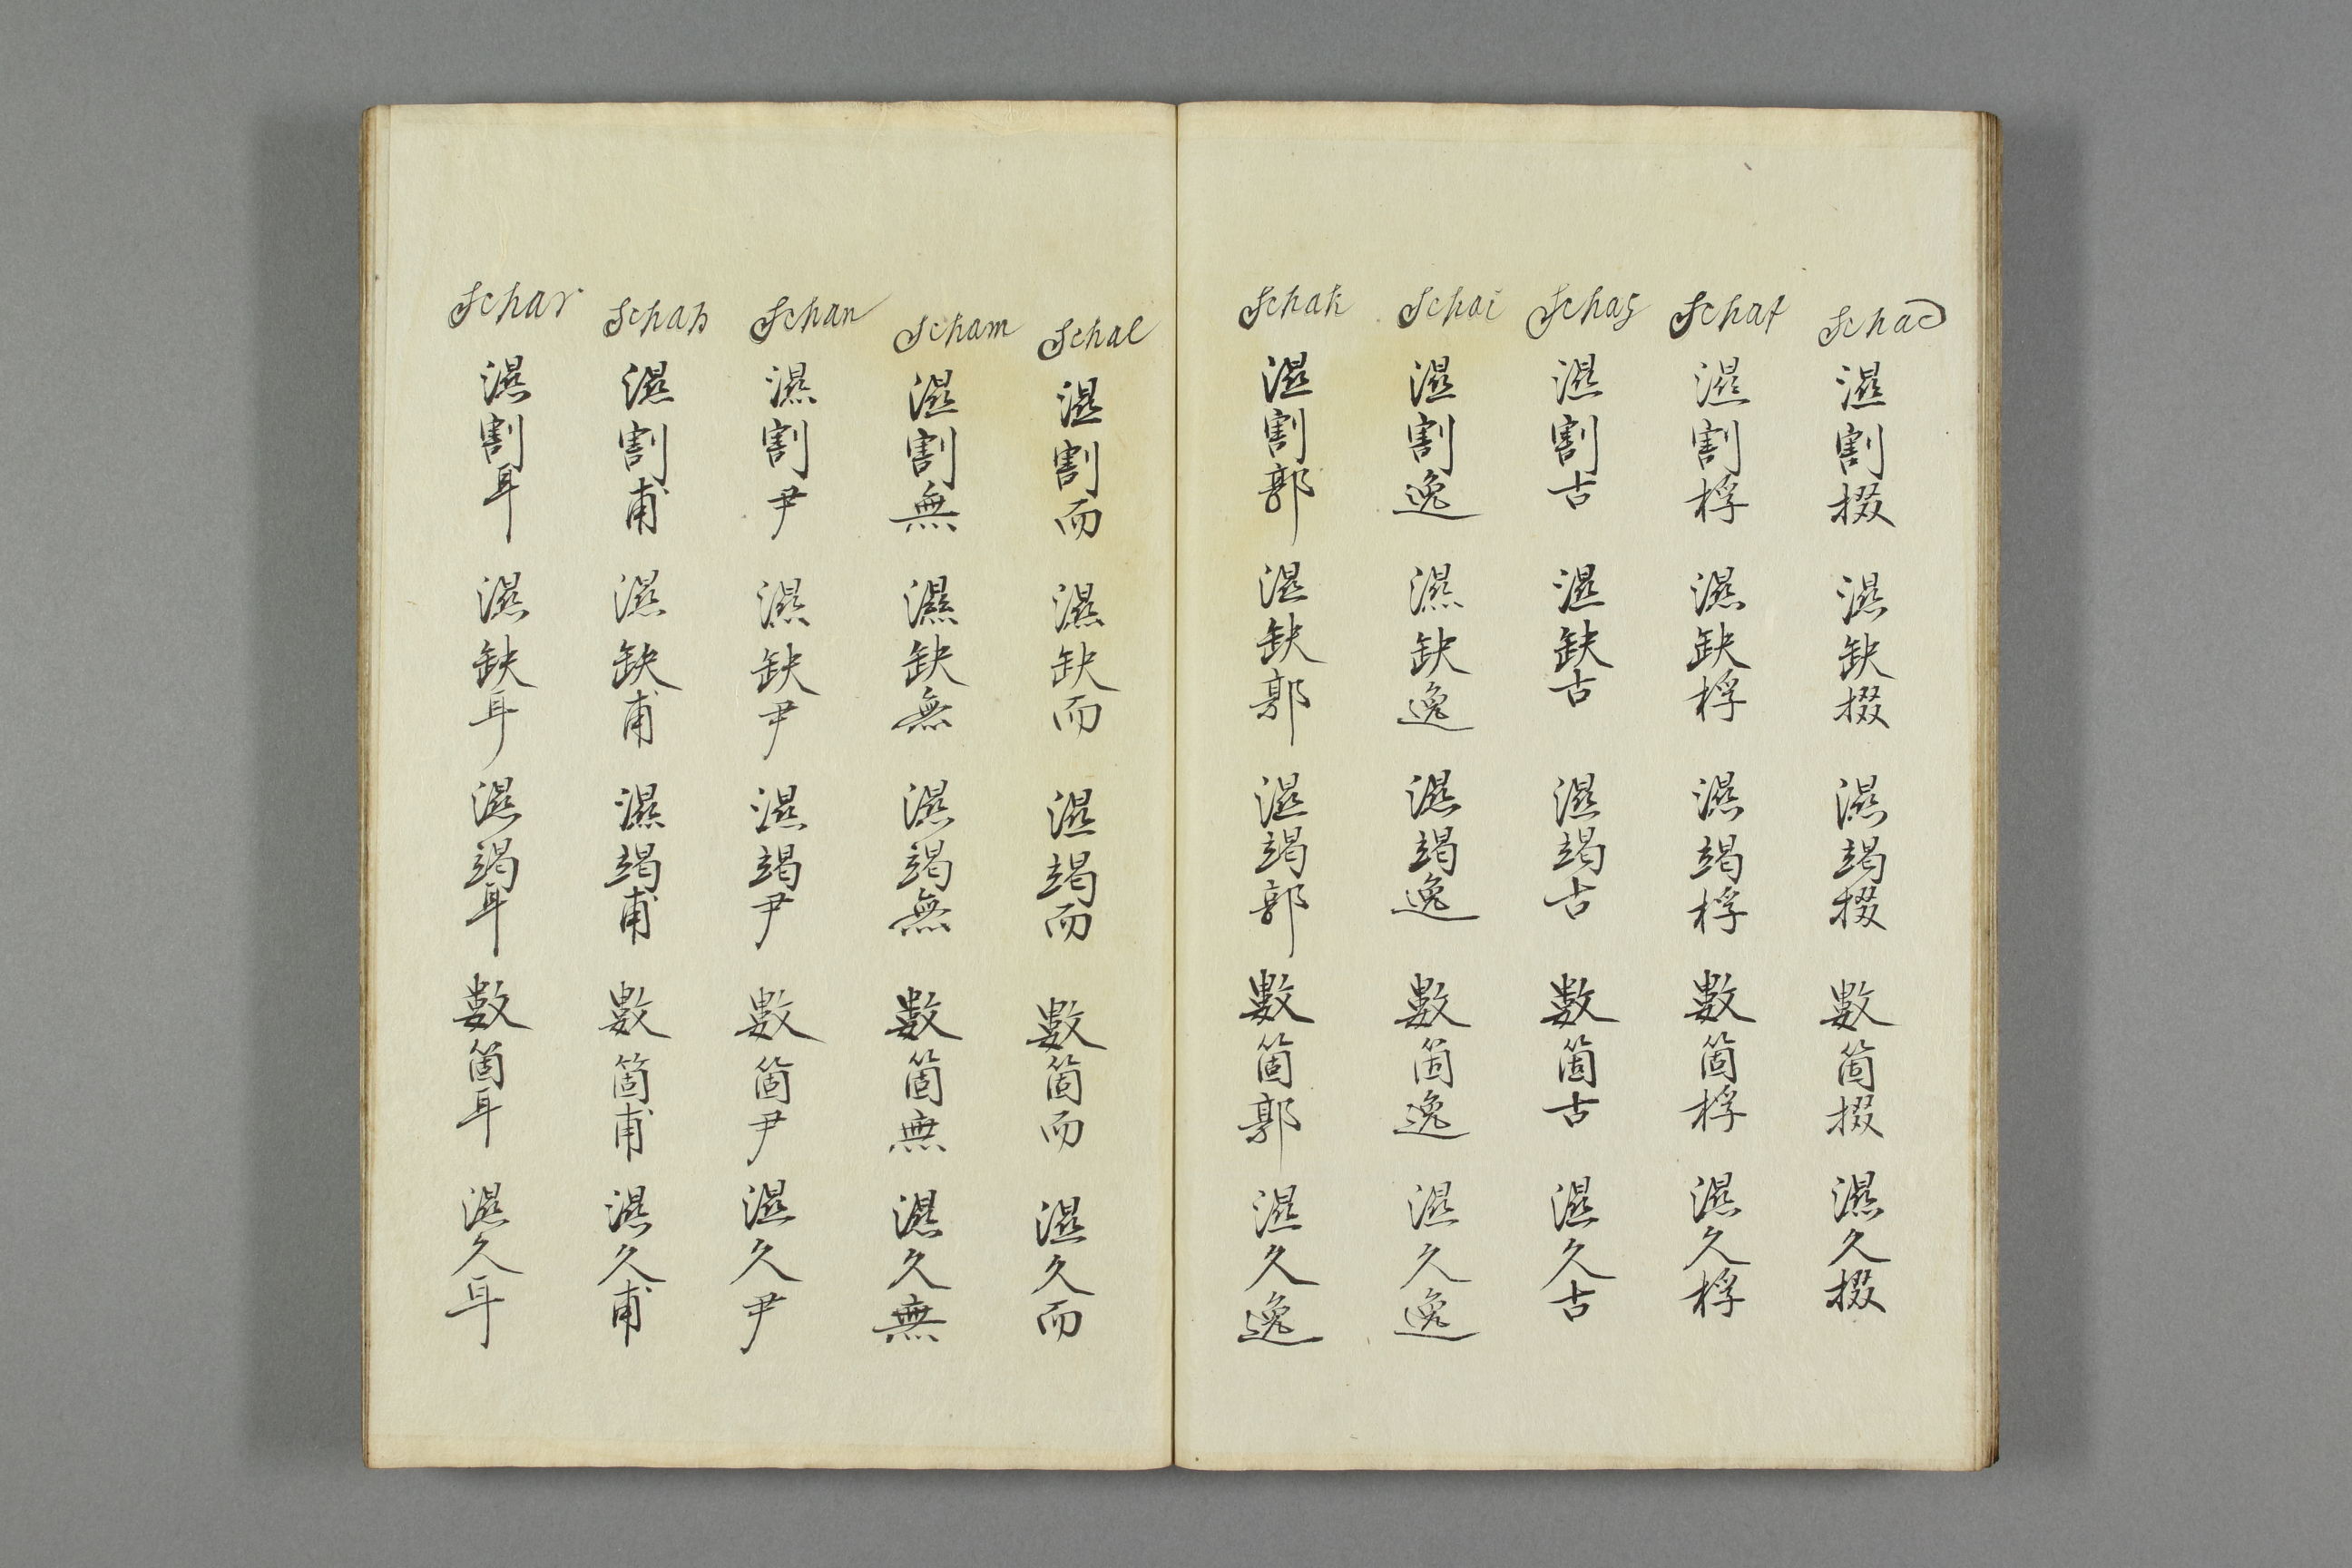 Schad
濕割掇 濕缺掇 濕竭掇 數箇掇 濕久掇
Schaf
濕割桴 濕缺桴 濕竭桴 數箇桴 濕久桴
Schag
濕割古 濕缺古 濕竭古 數箇古 濕久古
Schai
濕割逸 濕缺逸 濕竭逸 數箇逸 濕久逸
Schak
濕割郭 濕缺郭 濕竭郭 數箇郭 濕久逸
Schal
濕割而 濕缺而 濕竭而 數箇而 濕久而
Scham
濕割無 濕缺無 濕竭無 數箇無 濕久無
Schan
濕割尹 濕缺尹 濕竭尹 數箇尹 濕久尹
Schap
濕割甫 濕缺甫 濕竭甫 數箇甫 濕久甫
Schar
濕割耳 濕缺耳 濕竭耳 數箇耳 濕久耳